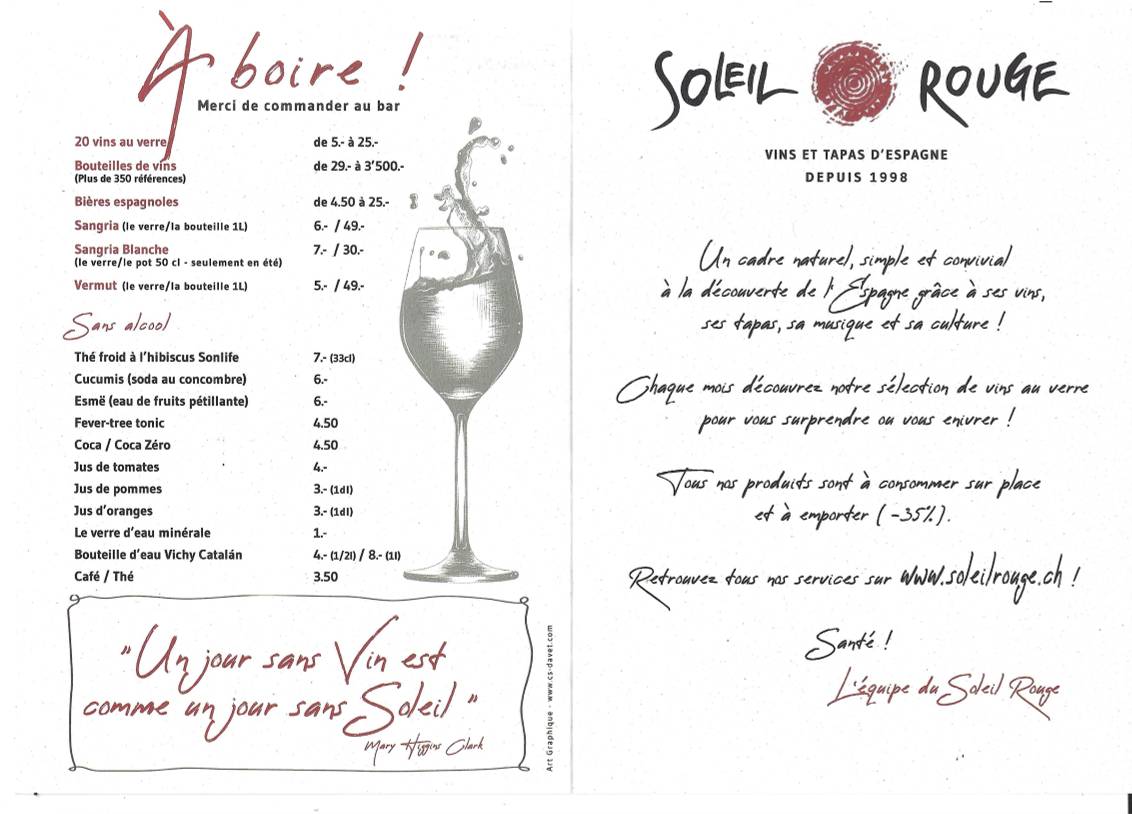 À boire !
Merci de commander au bar
20 vins au verre de 5.- à 25.-
Bouteilles de vins de 29.- à 3'500.-
(Plus de 350 références)
Bières espagnoles de 4.50 à 25.-
Sangria (le verre/la bouteille 1L) 6.- / 49.-
Sangria Blanche 7.- / 30.-
(le verre/le pot 50 cl - seulement en été)
Vermut (le verre/la bouteille 1L) 5.- / 49.-
Sans alcool
Thé froid à l'hibiscus Sonlife 7.- (33cl)
Cucumis (soda au concombre) 6.-
Esmë (eau de fruits pétillante) 6.-
Fever-tree tonic 4.50
Coca / Coca Zéro 4.50
Jus de tomates 4.-
Jus de pommes 3.- (1dl)
Jus d'oranges 3.- (1dl)
Le verre d'eau minérale 1.-
Bouteille d'eau Vichy Catalán 4.- (1/2l) / 8.- (1l)
Café / Thé 3.50
"Un jour sans Vin est
comme un jour sans Soleil "
Mary Higgins Clark
Art Graphique - www.cs-davet.com
SOLEIL ROUGE
VINS ET TAPAS D'ESPAGNE
DEPUIS 1998
Un cadre naturel, simple et convivial
à la découverte de l'Espagne grâce à ses vins,
ses tapas, sa musique et sa culture !
Chaque mois découvrez notre sélection de vins au verre
pour vous surprendre ou vous enivrer !
Tous nos produits sont à consommer sur place
et à emporter ( -35%).
Retrouvez tous nos services sur www.soleilrouge.ch !
Santé !
L'équipe du Soleil Rouge